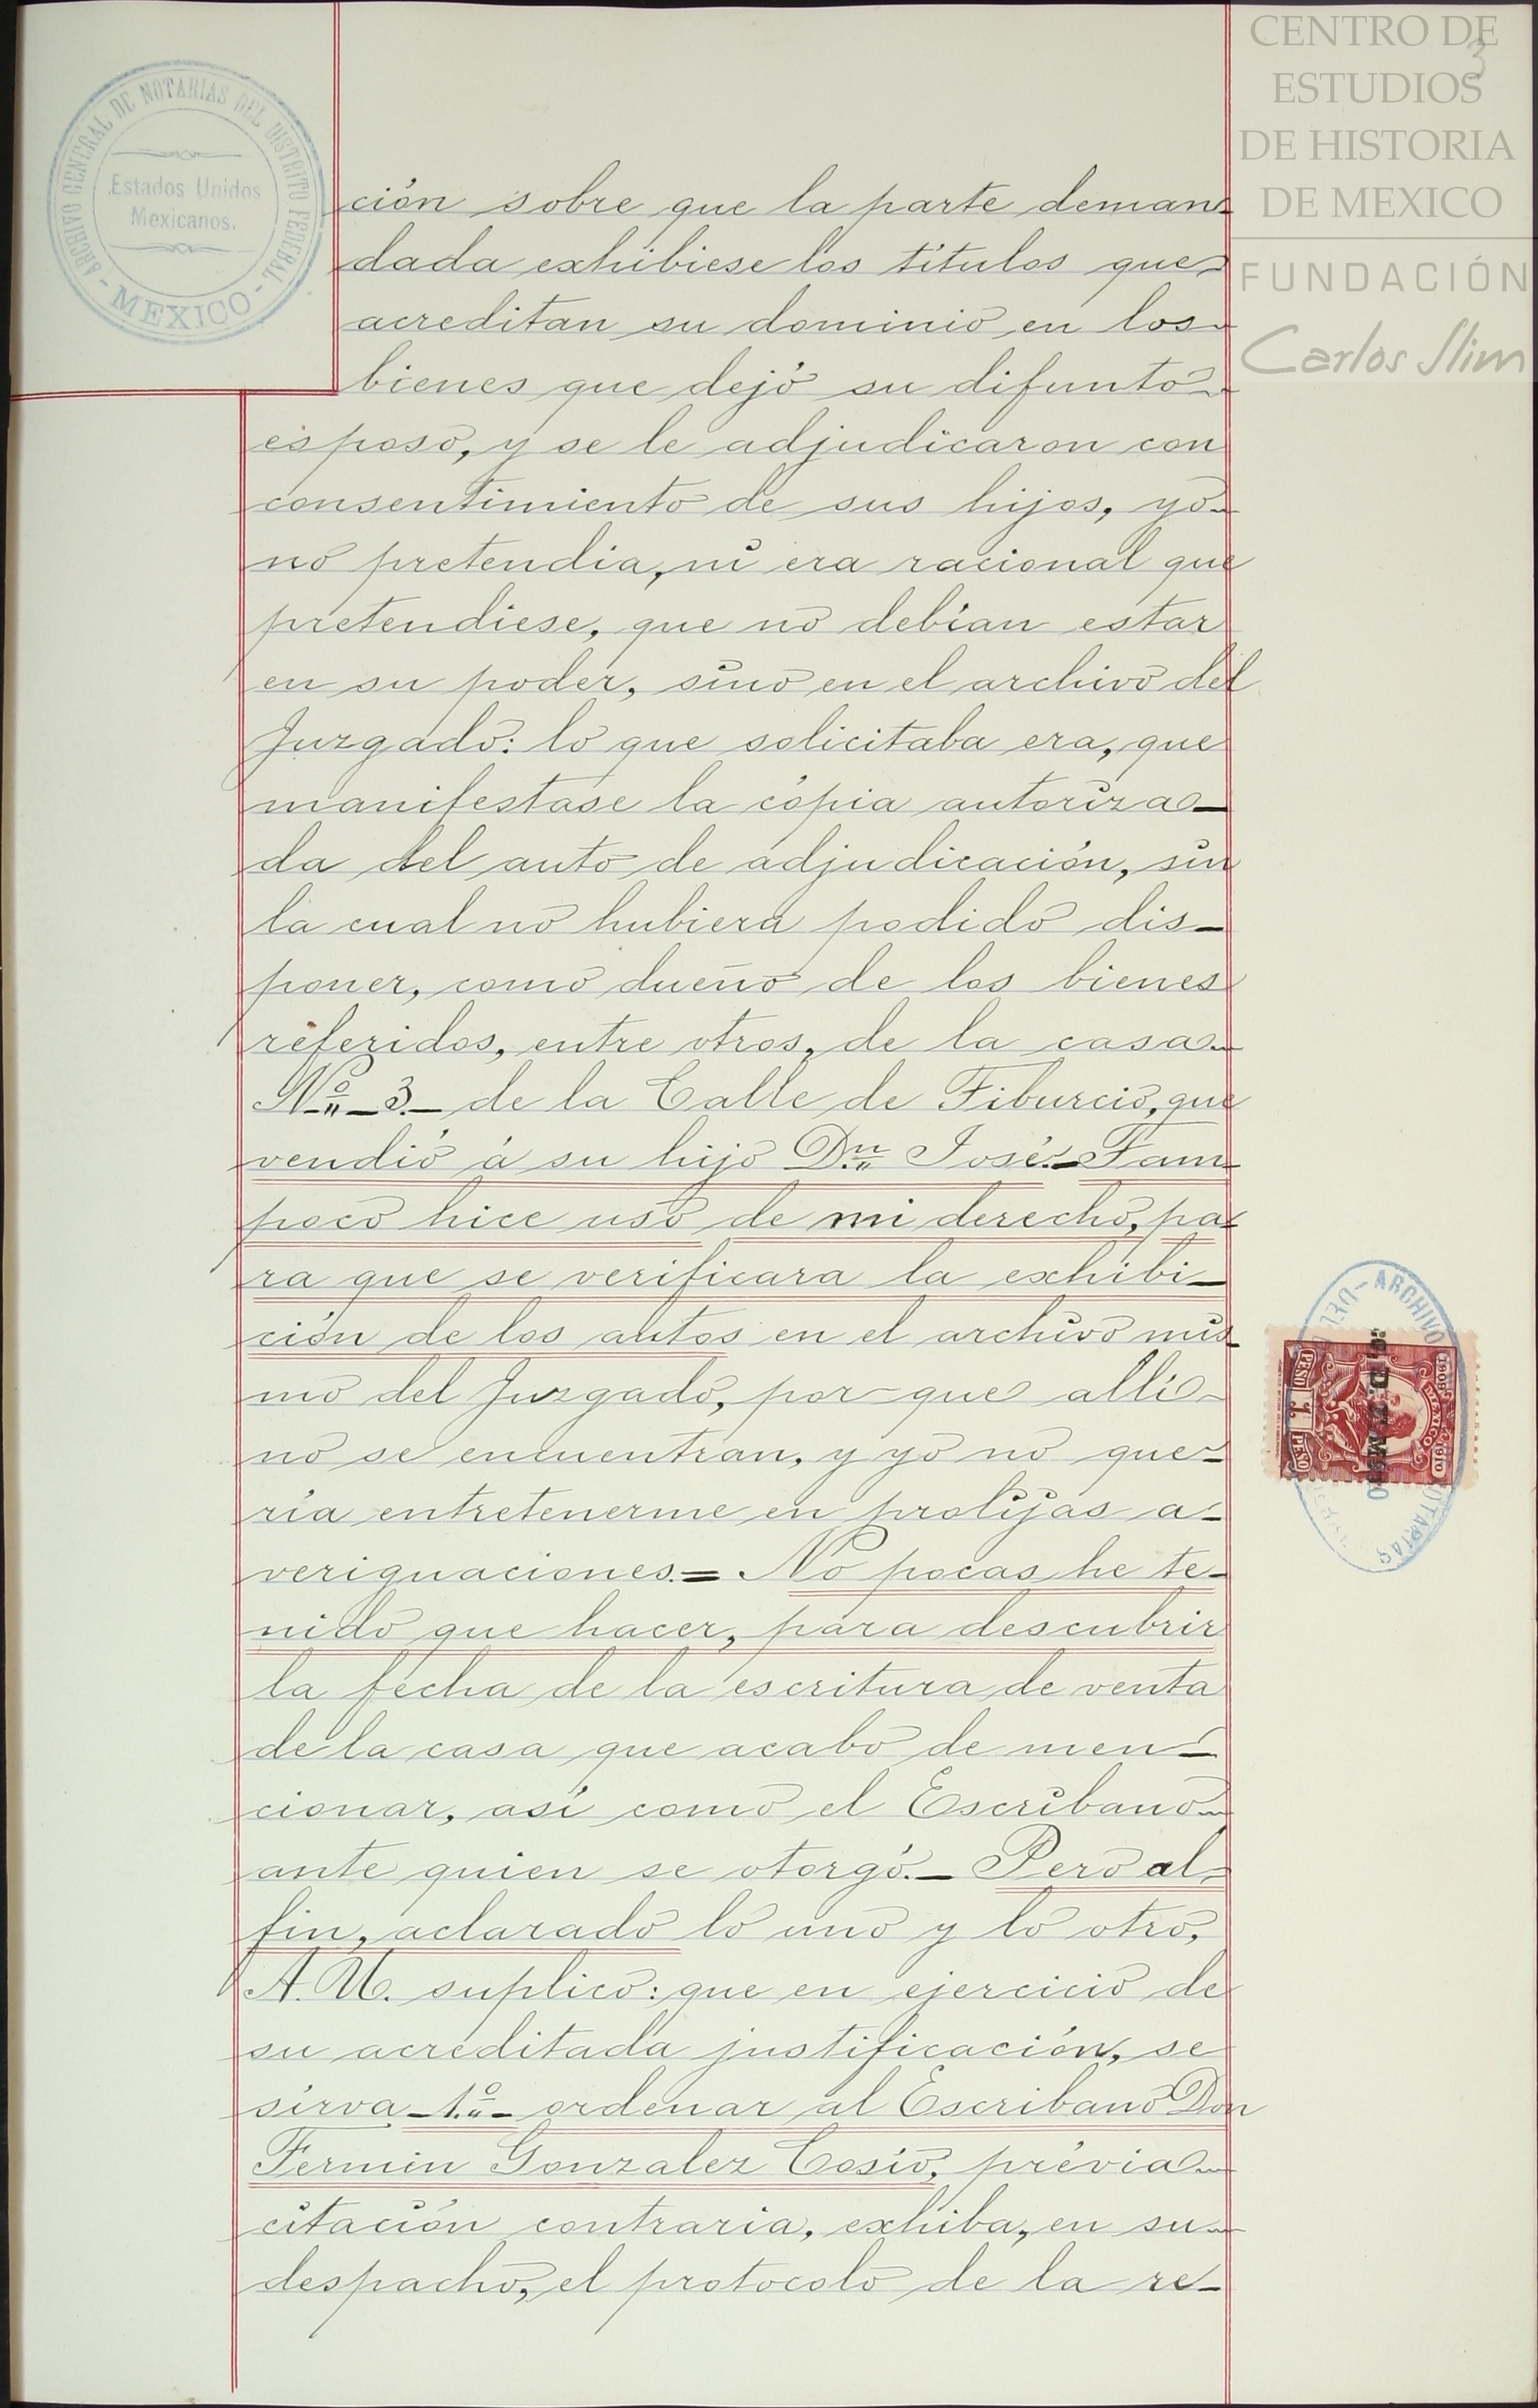 CENTRO DE
ESTUDIOS
DE HISTORIA
DE MEXICO
FUNDACIÓN
Carlos Slim
3
ARCHIVO GENERAL DE NOTARIAS DEL DISTRITO FEDERAL
- MEXICO -
Estados Unidos
Mexicanos.
ción sobre que la parte deman-
dada exhibiese los títulos que
acreditan su dominio en los
bienes que dejó su difunto
esposo, y se le adjudicaron con
consentimiento de sus hijos, yo
no pretendia, ni era racional que
pretendiese, que no debían estar
en su poder, sino en el archivo del
Juzgado: lo que solicitaba era, que
manifestase la cópia autoriza-
da del auto de adjudicación, sin
la cual no hubiera podido dis-
poner, como dueño de los bienes
referidos, entre otros, de la casa
Nº 3.- de la Calle de Tiburcio, que
vendió á su hijo Dn. José.- Tam-
poco hice uso de mi derecho, pa-
ra que se verificara la exhibi-
ción de los autos en el archivo mis-
mo del Juzgado, por que allí
no se encuentran, y yo no que-
ría entretenerme en prolijas a-
veriguaciones.= No pocas he te-
nido que hacer, para descubrir
la fecha de la escritura de venta
de la casa que acabo de men-
cionar, así como el Escribano
ante quien se otorgó.- Pero al
fin, aclarado lo uno y lo otro,
A. U. suplico: que en ejercicio de
su acreditada justificación, se
sirva -1.º- ordenar al Escribano Don
Fermin Gonzalez Cosío, prévia
citación contraria, exhiba, en su
despacho, el protocolo de la re-
ARCHIVO
NOTARIAS
DEL
PESO 1 PESO
MEXICO
1910